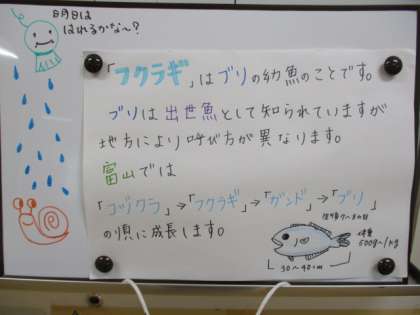 明日は
はれるかな〜?
「フクラギ」はブリの幼魚のことです。
ブリは出世魚として知られていますが
地方により呼び方が異なります。
富山では
「コヅクラ」→「フクラギ」→「ガンド」→「ブリ」
の順に成長します。
体重
600g〜1kg
30〜40cm